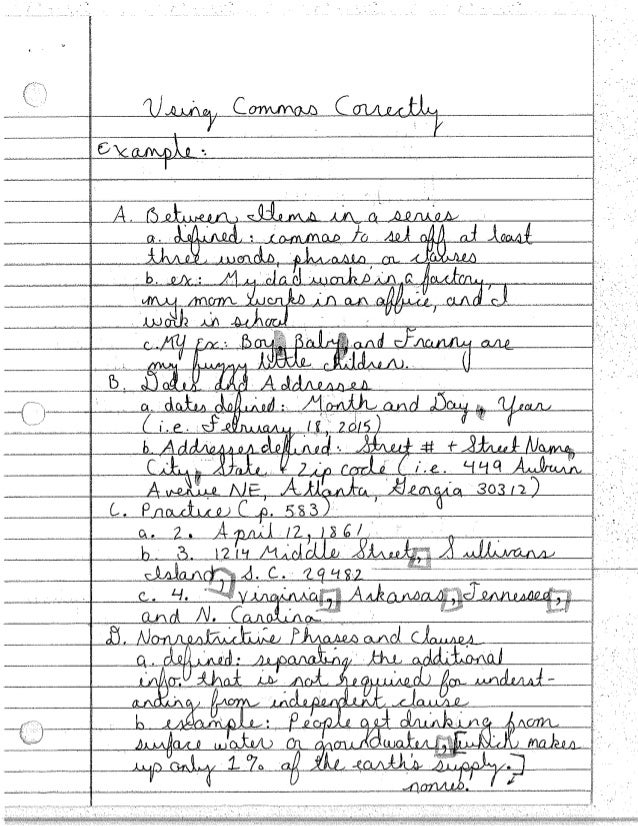 Using Commas Correctly
Example:
A. Between Items in a series
a. defined: commas to set off at least
three words, phrases, or clauses
b. ex.: My dad works in a factory,
my mom works in an office, and I
work in school
c. MY Ex: Boy, Baby, and Franny are
my fuzzy little children.
B. Dates and Addresses
a. dates defined: Month and Day, Year
(i.e. February 18, 2015)
b. Addresses defined: Street # + Street Name,
City, State + Zip code (i.e. 449 Auburn
Avenue NE, Atlanta, Georgia 30312)
C. Practice (p. 583)
a. 2. April 12, 1861
b. 3. 1214 Middle Street, Sullivans
Island, S. C. 29482
c. 4. Virginia, Arkansas, Tennessee,
and N. Carolina
D. Nonrestrictive Phrases and Clauses
a. defined: separating the additional
info. that is not required for underst-
anding from independent clause
b. example: People get drinking from
surface water or groundwater, [which makes
up only 1% of the earth's supply.]
nonres.